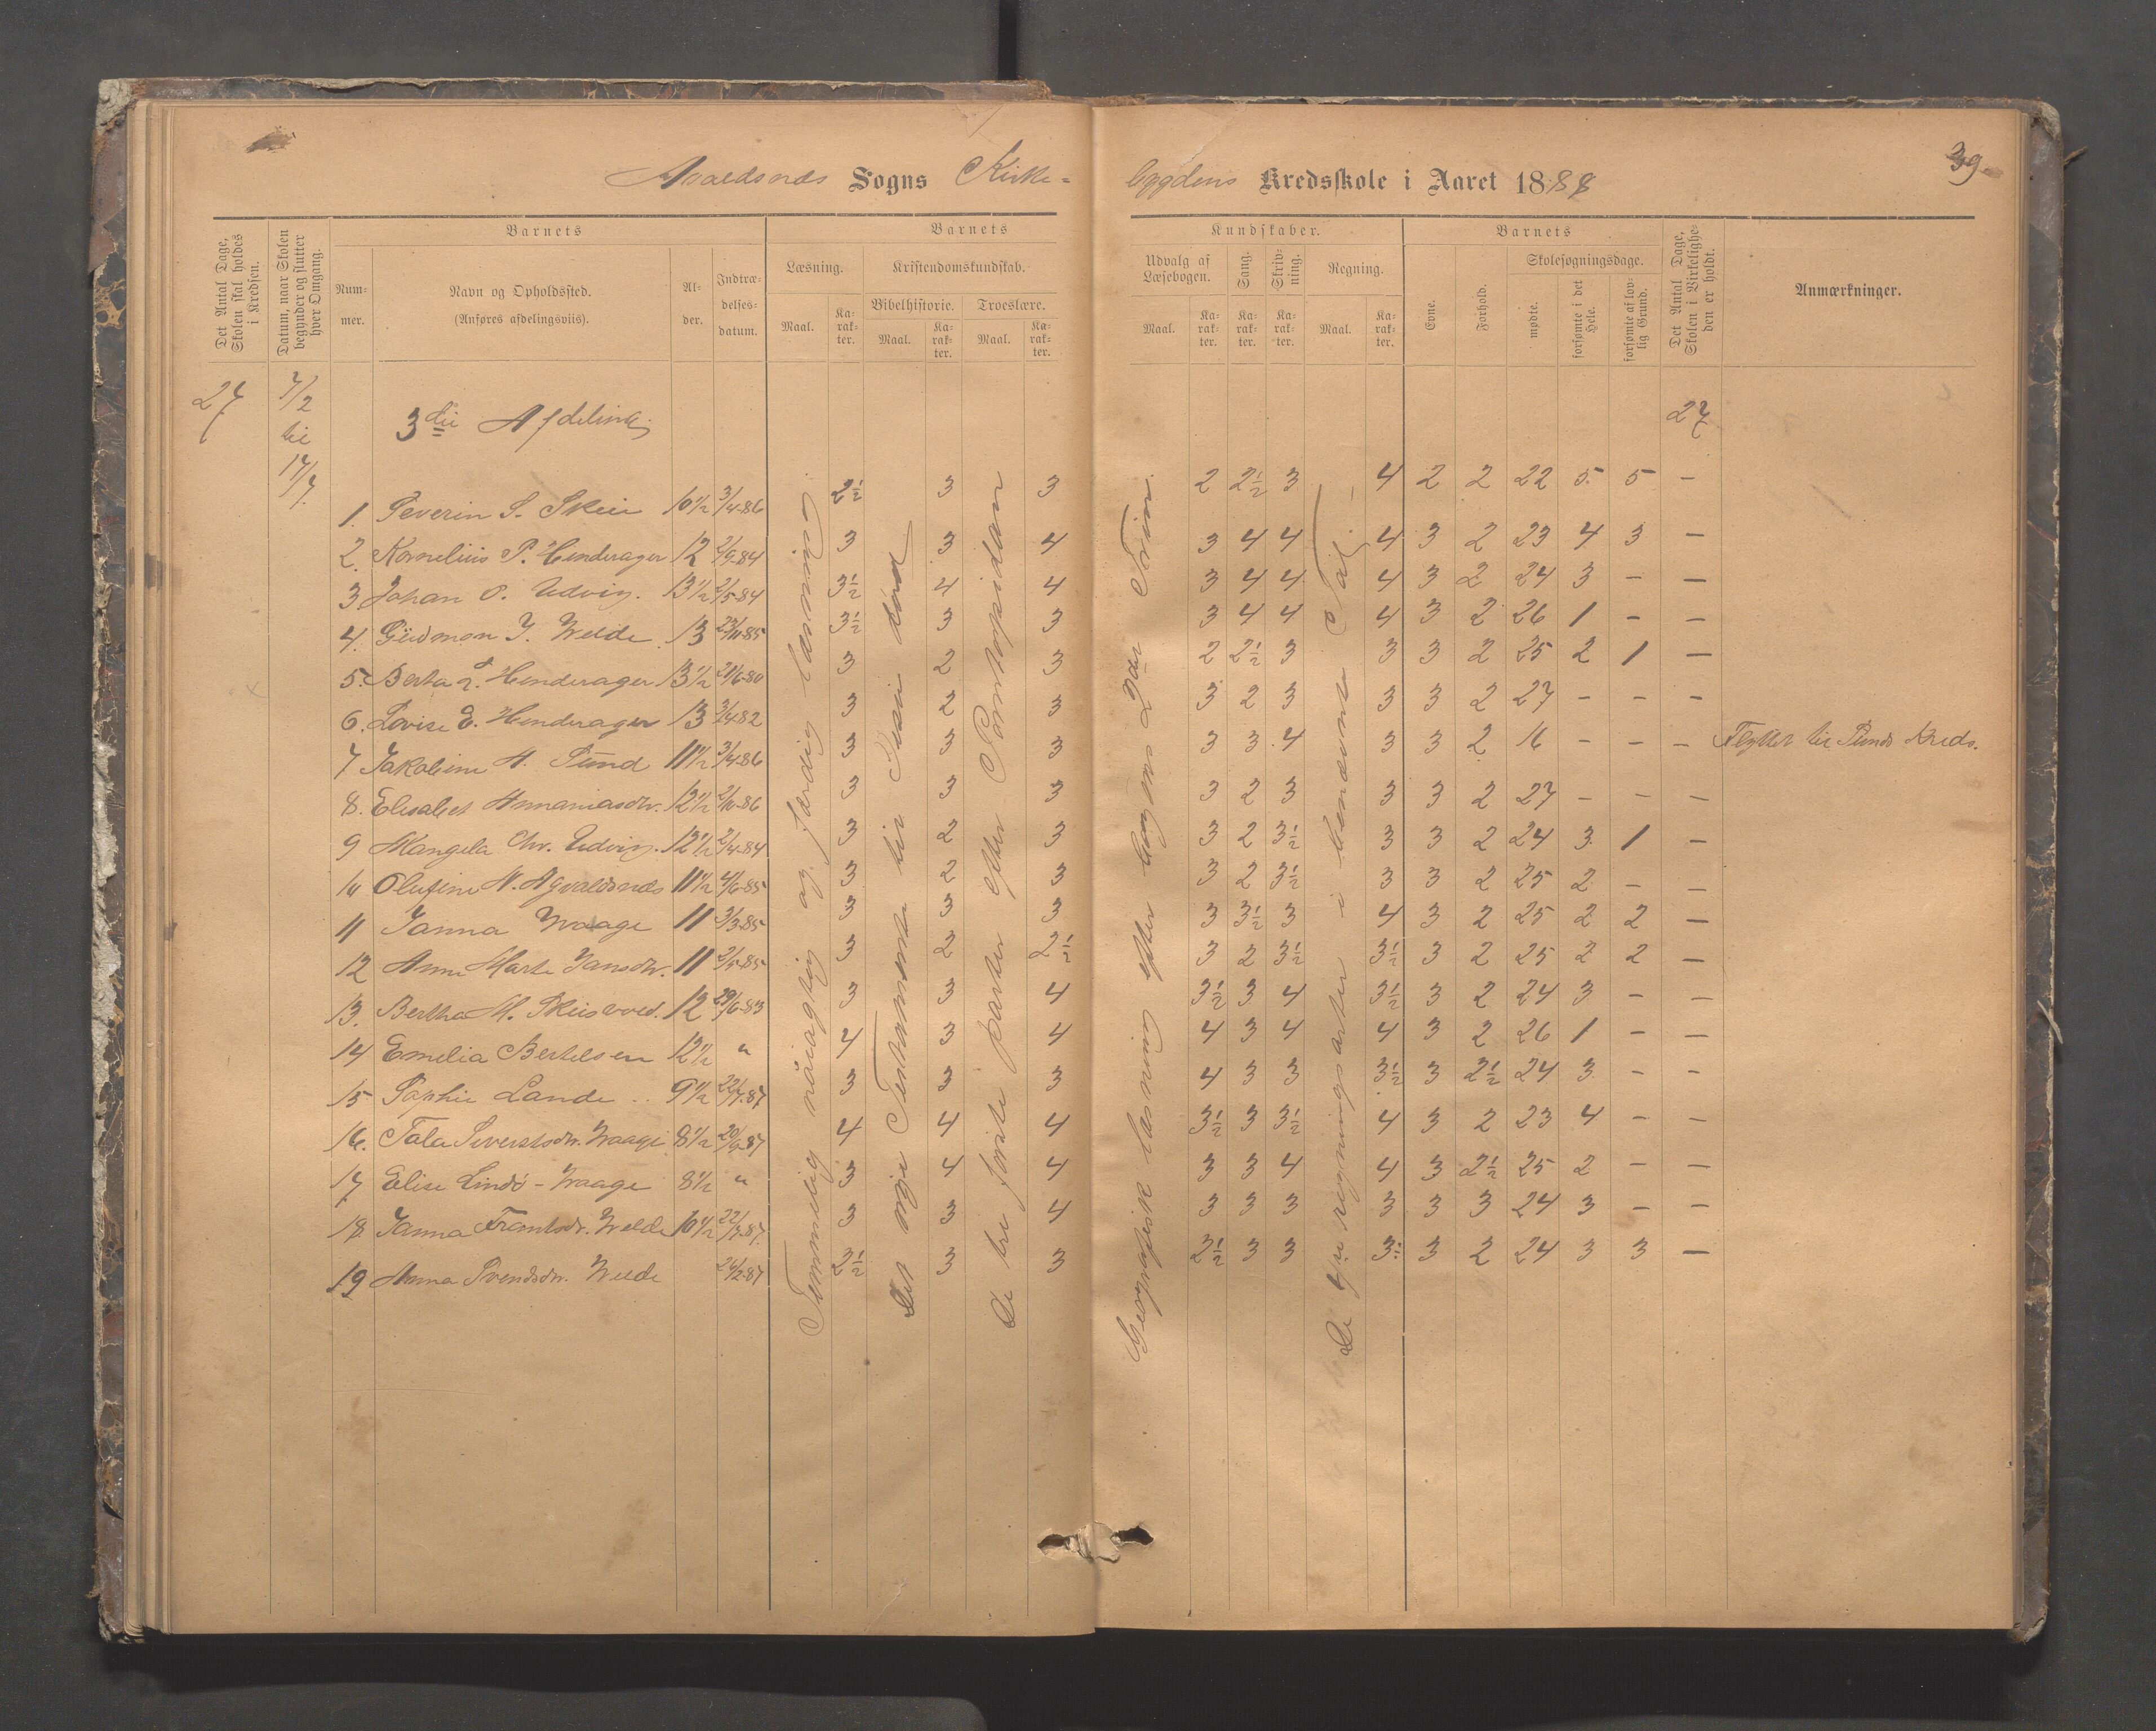 39.
Avaldsnæs Sogns Kirke=
bygdens Kredsskole i Aaret 1888
Det Antal Dage, Skolen skal holdes i Kredsen.
Datum, naar Skolen begynder og slutter hver Omgang.
Barnets
Nummer.
Navn og Opholdssted.
(Anføres afdelingsviis).
Alder.
Indtrædelsesdatum.
Barnets
Læsning.
Kristendomskundskab.
Bibelhistorie. Troeslære.
Maal. Karakter. Maal. Karakter. Maal. Karakter.
Kundskaber.
Udvalg af Læsebogen. Sang. Skrivning. Regning.
Maal. Karakter. Karakter. Karakter. Maal. Karakter.
Barnets
Evne. Forhold.
Skolesøgningsdage.
mødte. forsømte i det Hele. forsømte af lovlig Grund.
Det Antal Dage, Skolen i Virkeligheden er holdt.
Anmærkninger.
27 7/2 til 17/7.
3die Afdeling.
27
1. Severin S. Skeie 10 1/2 3/4-86 2½ 3 3 2 2½ 3 4 2 2 22 5 5 —
2. Kornelius P. Henderager 12 2/9-84 3 3 4 3 4 4 4 3 2 23 4 3 —
3 Johan O. Udvig. 13 1/2 2/5-84 3½ 4 4 3 4 4 4 3 2 24 3 — —
4. Gudmon J. Velde 13 23/11-85 3½ 3 3 3 4 4 4 3 2 26 1 — —
5. Berta Henderager 13 1/2 21/6-80 3 2 3 2 2½ 3 3 3 2 25 2 1 —
6. Lovise E. Henderager 13 3/4-82 3 2 3 3 2 3 3 3 2 27 — — —
7 Jakobine H. Sund 11 1/2 3/4-86 3 3 3 3 3 4 3 3 2 16 — — — Flyttet til Sunds Kreds.
8. Elisabet Annaniasdtr. 12 1/2 2/11-86 3 3 3 3 2 3 3 3 2 27 — — —
9 Mangela Chr. Udvig. 12 1/2 2/4-84 3 2 3 3 2 3½ 3 3 2 24 3 1 —
10 Olufine H. Agvaldsnæs 11 1/2 4/6-85 3 2 3 3 2 3½ 3 3 2 25 2 — —
11 Janna Waage 11 3/3-85 3 3 3 3 3½ 3 4 3 2 25 2 2 —
12 Anne Marte Jansdtr. 11 2/5-85 3 2 2½ 3 2 3½ 3½ 3 2 25 2 2 —
13. Bertha M. Skeisvold. 12 29/6-83 3 3 4 3½ 3 4 3½ 3 2 24 3 — —
14 Emelia Bertelsen 12 1/2 " 4 3 4 4 3 4 4 3 2 26 1 — —
15 Sophie Lande 9 1/2 22/7-87 3 3 3 4 3 3 3½ 3 2½ 24 3 — —
16. Tala Siverstsdtr. Waage 8 1/2 20/9-87 4 4 4 3½ 3 3½ 4 3 2 23 4 — —
17 Elise Lindö - Waage 8 1/2 " 3 4 4 3 3 4 4 3 2½ 25 2 — —
18. Janna Frantsdtr. Velde 10 1/2 22/7-87. 3 3 4 3 3 3 3 3 3 24 3 — —
19 Anna Svendsdtr. Velde 24/2-87 2½ 3 3 2½ 3 3 3½ 3 2 24 3 3 —
Temmelig nöiagtig og færdig læsning
Det nye Testamente til Jesu död
De tre förste parter efter Pontoppidan
Geografisk læsning efter bogens 2den Trin.
De fire regningsarter i benævnte Tal.